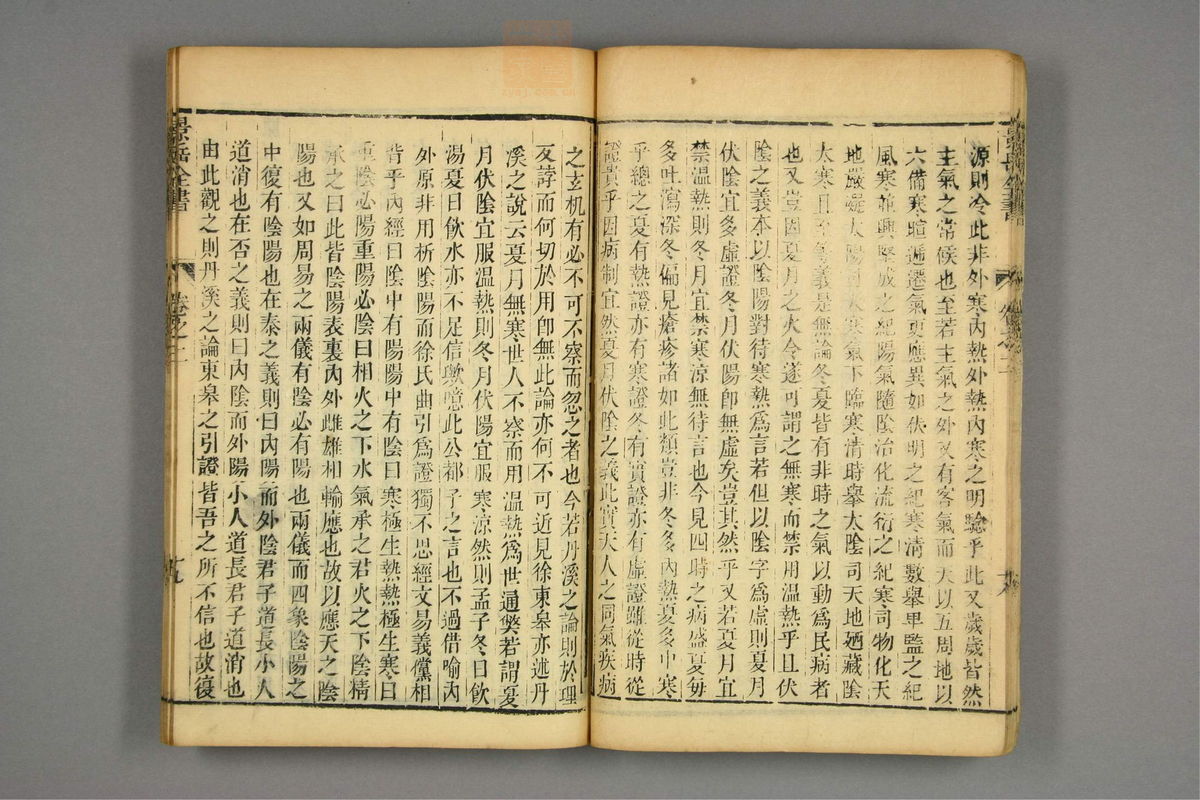 源則冷此非外寒内熱外熱内寒之明驗乎此又歲歲皆然
主氣之常候也至若主氣之外又有客氣而天以五周地以
六備寒暄遞遷氣更應異如伏明之紀寒清數舉卑監之紀
風寒並興堅成之紀陽氣隨陰治化流衍之紀寒司物化天
地嚴凝太陽司天寒氣下臨寒清時舉太陰司天地廼藏陰
大寒且至等義是無論冬夏皆有非時之氣以動爲民病者
也又豈因夏月之火令遂可謂之無寒而禁用温熱乎且伏
陰之義本以陰陽對待寒熱爲言若但以陰字爲虛則夏月
伏陰宜多虛證冬月伏陽即無虛矣豈其然乎又若夏月宜
禁温熱則冬月宜禁寒涼無待言也今見四時之病盛夏每
多吐瀉深冬偏見瘡疹諸如此類豈非冬多内熱夏多中寒
乎總之夏有熱證亦有寒證冬有實證亦有虛證雖從時從
證貴乎因病制宜然夏月伏陰之義此實天人之同氣疾病
之玄机有必不可不察而忽之者也今若丹溪之論則於理
反誖而何切於用卽無此論亦何不可近見徐東皋亦述丹
溪之說云夏月無寒世人不察而用温熱爲世通獘若謂夏
月伏陰宜服温熱則冬月伏陽宜服寒涼然則孟子冬日飲
湯夏日飲水亦不足信歟噫此公都子之言也不過借喻内
外原非用析陰陽而徐氏曲引爲證獨不思經文易義儻相
背乎内經曰陰中有陽陽中有陰曰寒極生熱熱極生寒曰
重陰必陽重陽必陰曰相火之下水氣承之君火之下陰精
承之曰此皆陰陽表裏内外雌雄相輸應也故以應天之陰
陽也又如周易之兩儀有陰必有陽也兩儀而四象陰陽之
中復有陰陽也在泰之義則曰内陽而外陰君子道長小人
道消也在否之義則曰内陰而外陽小人道長君子道消也
由此觀之則丹溪之論東皋之引證皆吾之所不信也故復
景岳全書
卷之二
十九